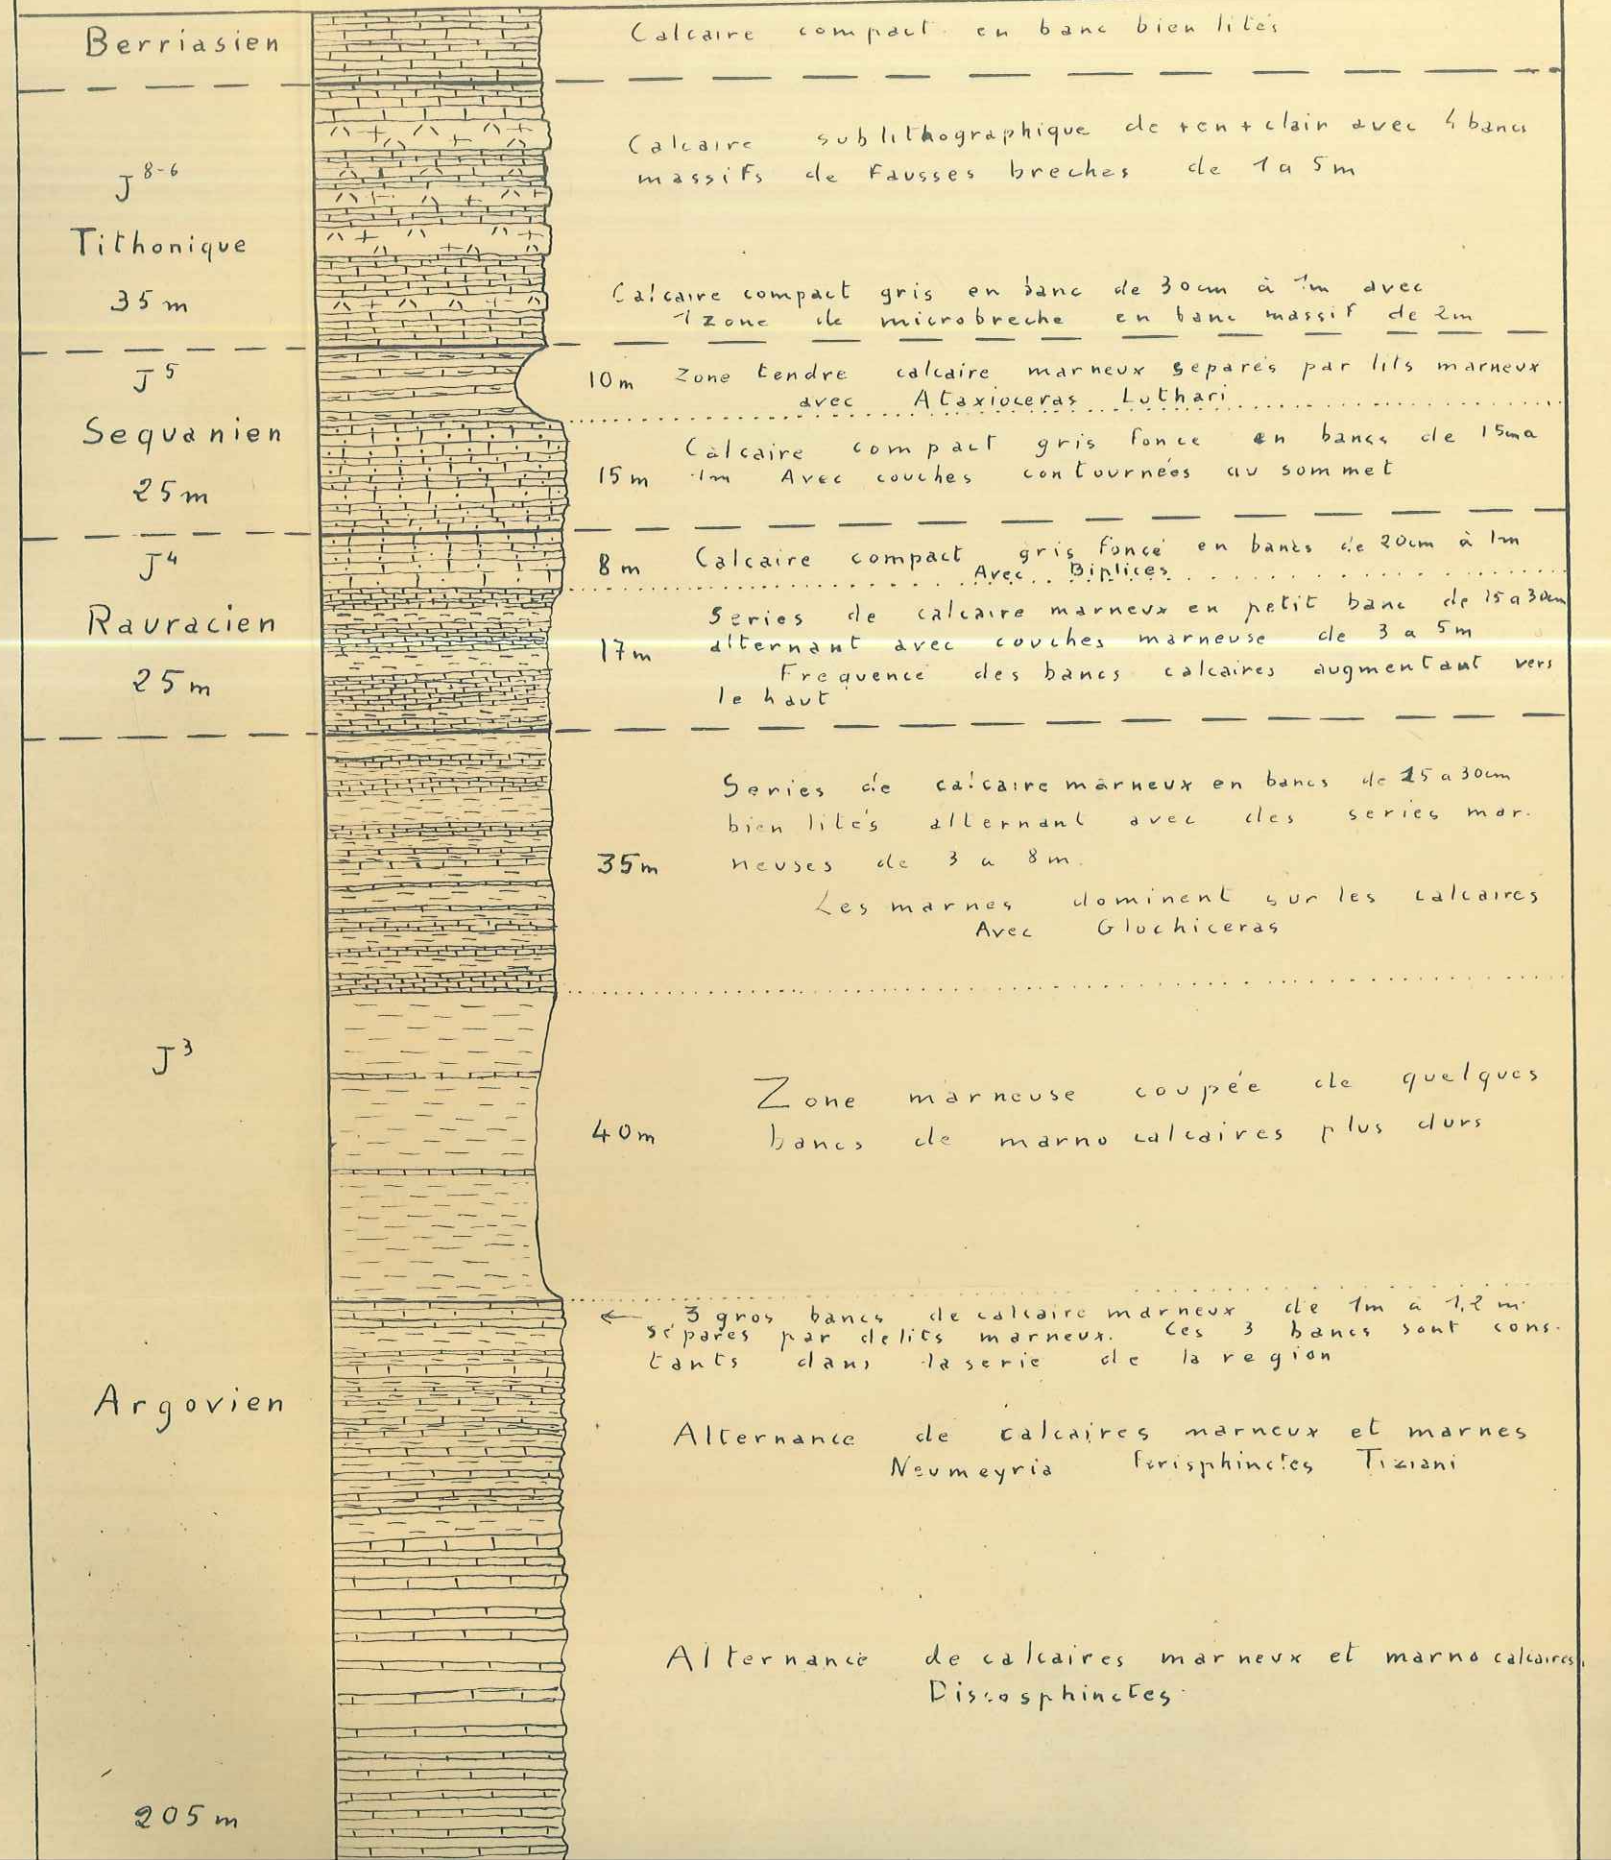 Berriasien
Calcaire compact en banc bien lités
J 8-6
Tithonique
35 m
Calcaire sublithographique de + en + clair avec 4 bancs
massifs de Fausses breches de 1 a 5 m
Calcaire compact gris en banc de 30 cm à 1m avec
1 zone de microbreche en banc massif de 2m
J 5
Sequanien
25 m
10 m
Zone tendre calcaire marneux separés par lits marneux
avec Ataxioceras Luthari
15 m
Calcaire compact gris foncé en bancs de 15cm a
1m Avec couches contournées au sommet
J 4
Rauracien
25 m
8 m
Calcaire compact gris foncé en bancs de 20cm à 1m
Avec Biplices
17 m
Series de calcaire marneux en petit banc de 15 a 30cm
alternant avec couches marneuse de 3 a 5 m
Frequence des bancs calcaires augmentant vers
le haut
J 3
Argovien
205 m
35 m
Series de calcaire marneux en bancs de 15 a 30cm
bien lités alternant avec des series mar.
neuses de 3 a 8 m.
Les marnes dominent sur les calcaires
Avec Glochiceras
40 m
Zone marneuse coupée de quelques
bancs de marno calcaires plus durs
← 3 gros bancs de calcaire marneux de 1m a 1,2 m.
séparés par delits marneux. Ces 3 bancs sont cons.
tants dans la serie de la region
Alternance de calcaires marneux et marnes
Neumeyria Perisphinctes Tiziani
Alternance de calcaires marneux et marno calcaires.
Discosphinctes